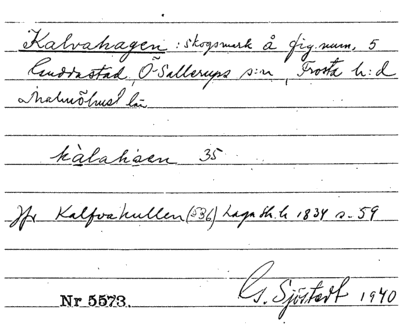 Kalvahagen : skogsmark å fig. num. 5
Ö-Sallerups s:n, Frosta h:d
Malmöhus län
35
Jfr Kalfvakullen (536) Laga sk. h. 1834 s. 59
Nr 5573.
G. Sjöstedt 1940